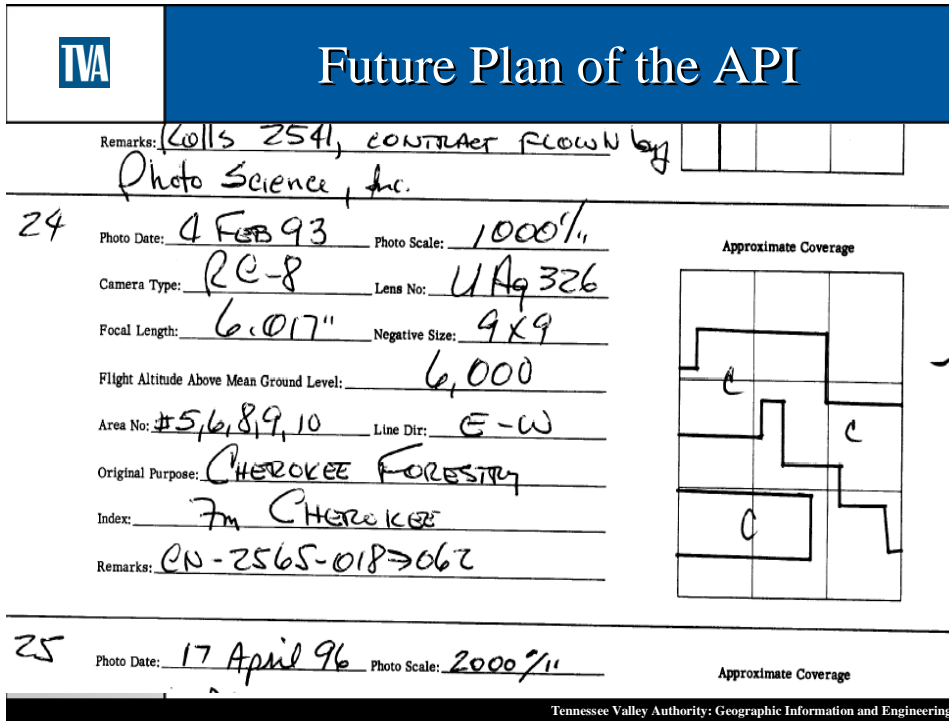 TVA
Future Plan of the API
Remarks: Rolls 2541, CONTRACT FLOWN by
Photo Science, Inc.
24
Photo Date: 4 FEB 93 Photo Scale: 1000'/"
Approximate Coverage
Camera Type: RC-8 Lens No: UAg 326
Focal Length: 6.017" Negative Size: 9x9
C
Flight Altitude Above Mean Ground Level: 6,000
Area No: #5,6,8,9,10 Line Dir: E-W
C
Original Purpose: CHEROKEE FORESTRY
Index: 7m CHEROKEE
C
Remarks: CN-2565-018→062
25
Photo Date: 17 April 96 Photo Scale: 2000'/"
Approximate Coverage
Tennessee Valley Authority: Geographic Information and Engineering